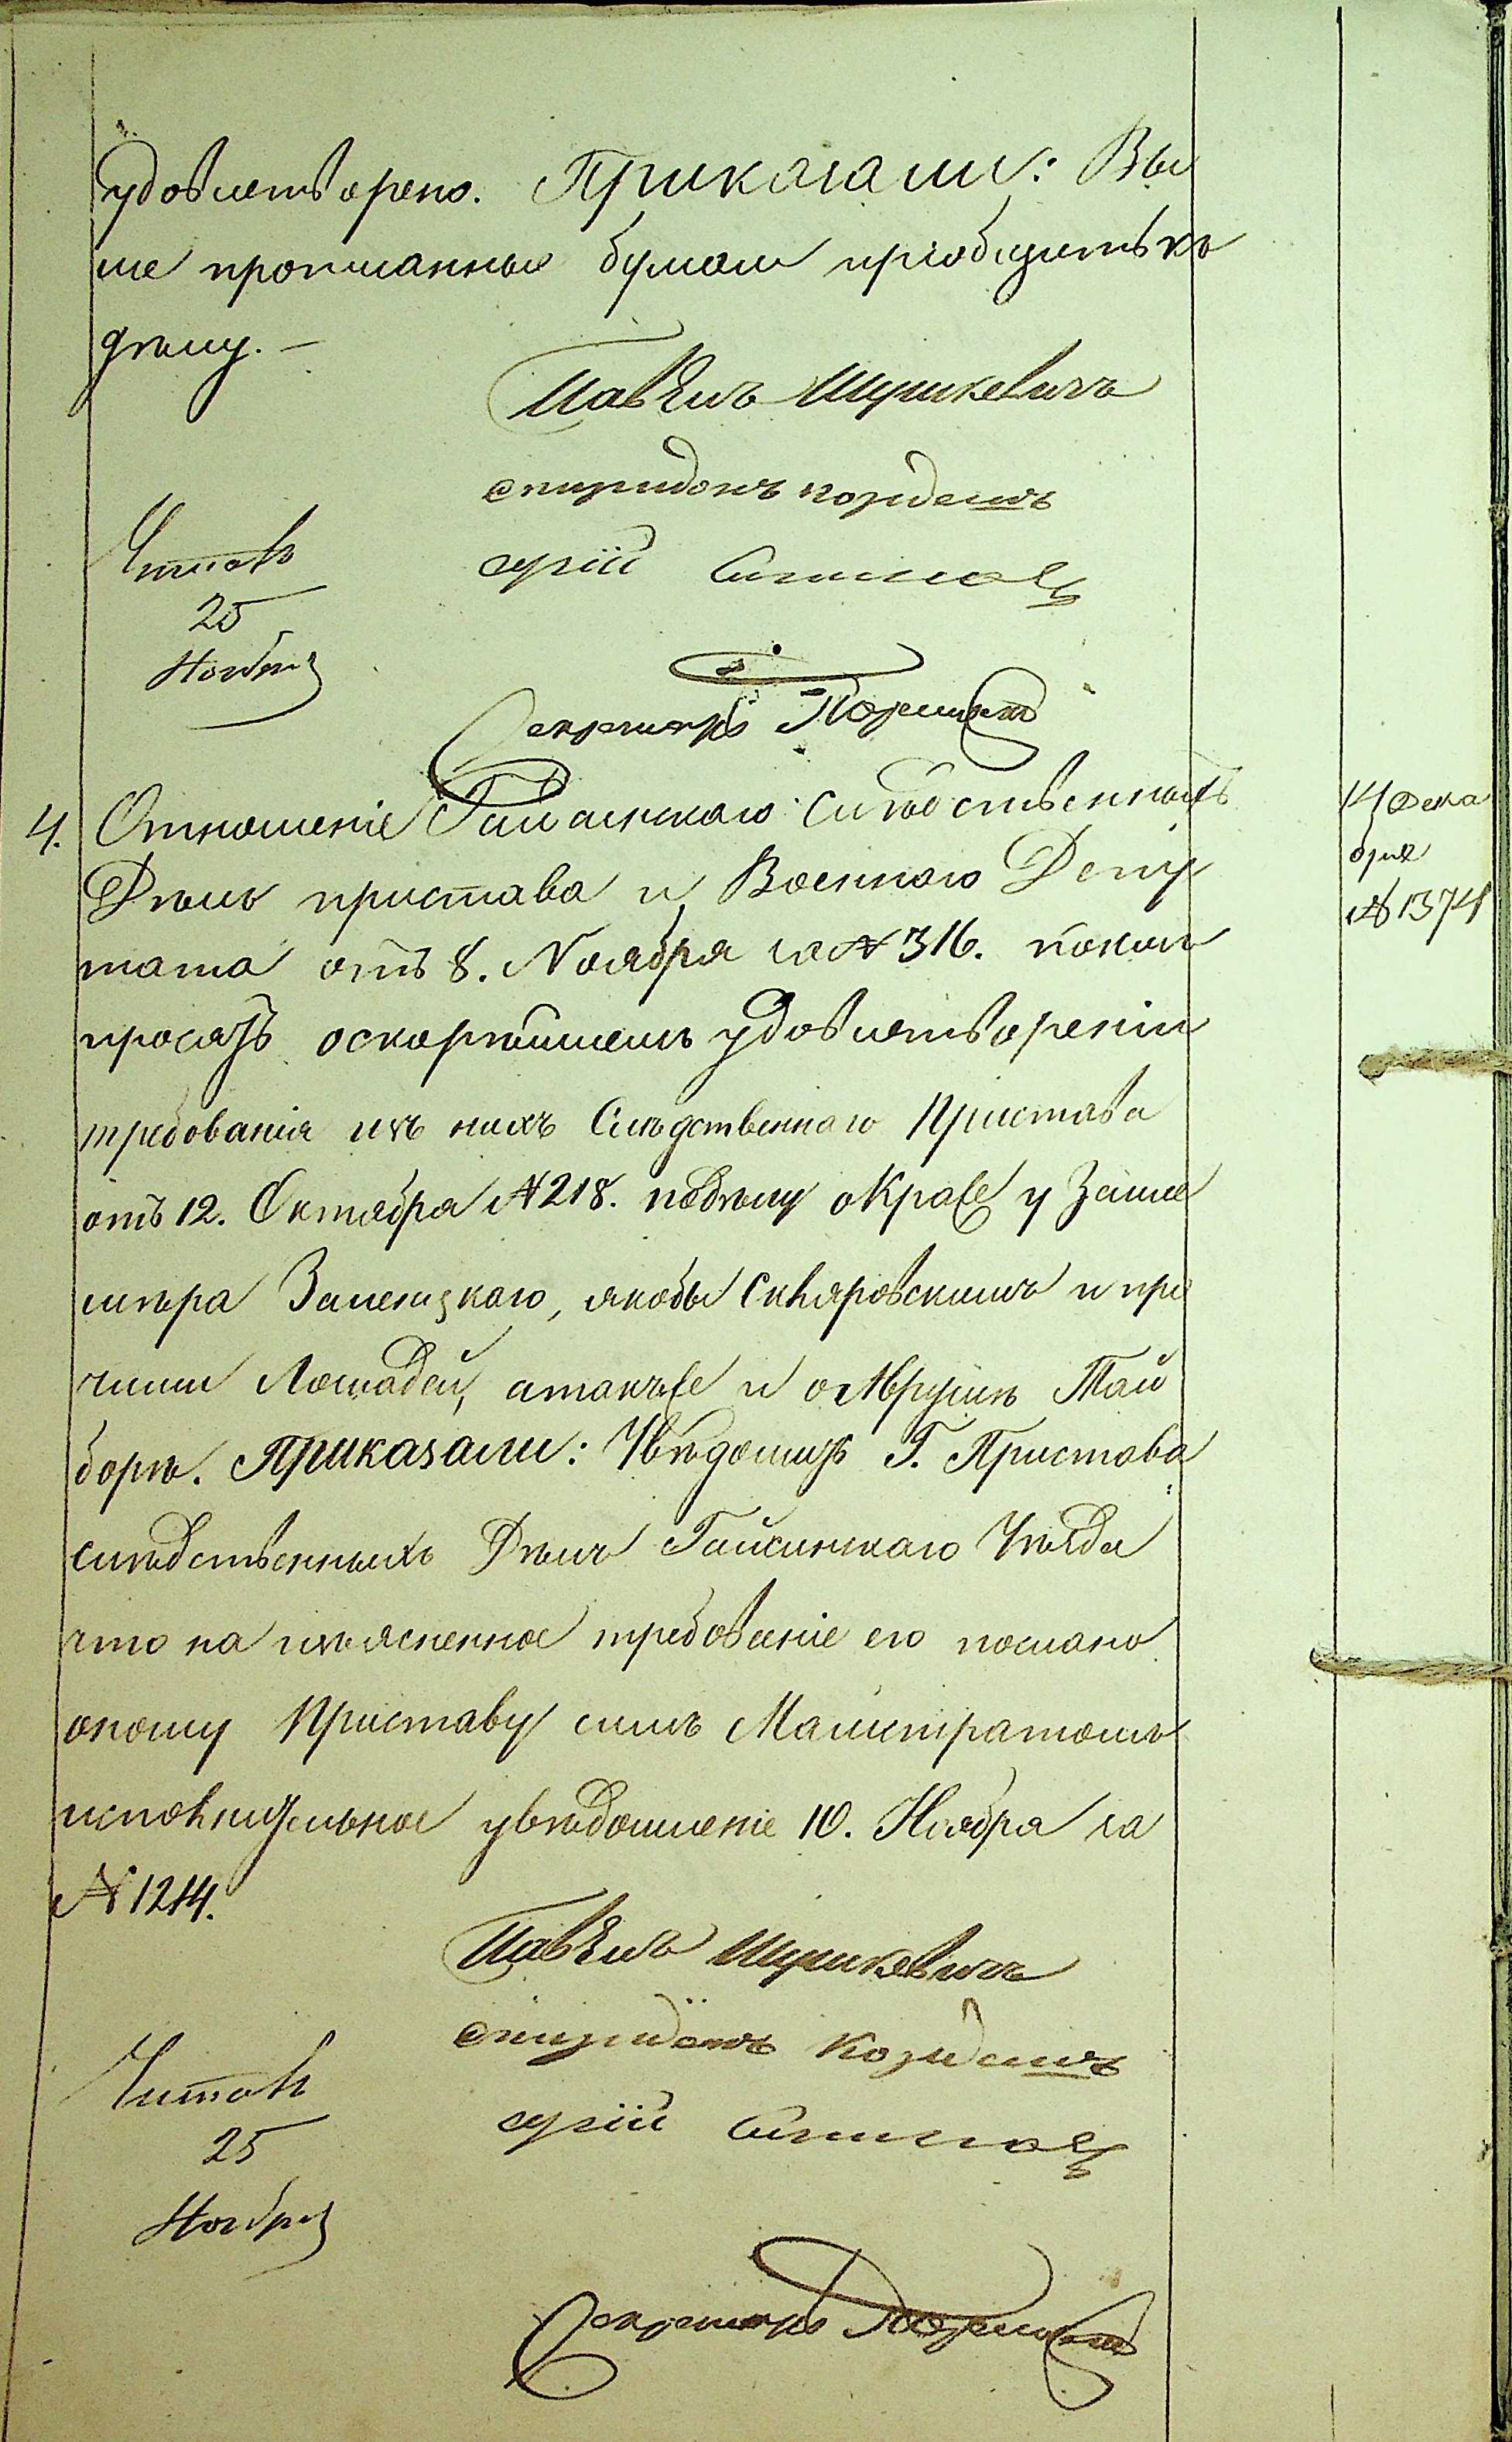 удовлетворено. Приказали: Вы
ше прописанные бумаги пріобщить къ
дѣлу. —
Павелъ Шушкевичъ
спиридонъ
сергій
Читалъ
25
Ноября
Секретарь
4. Отношеніе Гайсинскаго слѣдственныхъ
Дѣлъ пристава и Военнаго Депу
тата отъ 8. Ноября за № 316. коимъ
просятъ оскорѣйшемъ удовлетвореніи
требованія изъ нихъ Слѣдственнаго Пристава
отъ 12. Октября № 218. подѣлу окражѣ у Землѣ
мѣра Зіленецкаго, якобы Скляровскимъ и про
чими Лошадей, атакъже и
борѣ. Приказали: Увѣдомить Г. Пристава
слѣдственныхъ Дѣлъ Гайсинскаго Уѣзда
что на изъясненное требованіе его послано
оному Приставу симъ Магистратомъ
исполнительное увѣдомленіе 10. Ноября за
№ 1214.
Павелъ Шушкевичъ
спиридонъ
сергій
Читалъ
25
Ноября
Секретарь
14 Дека
бря
№ 1374